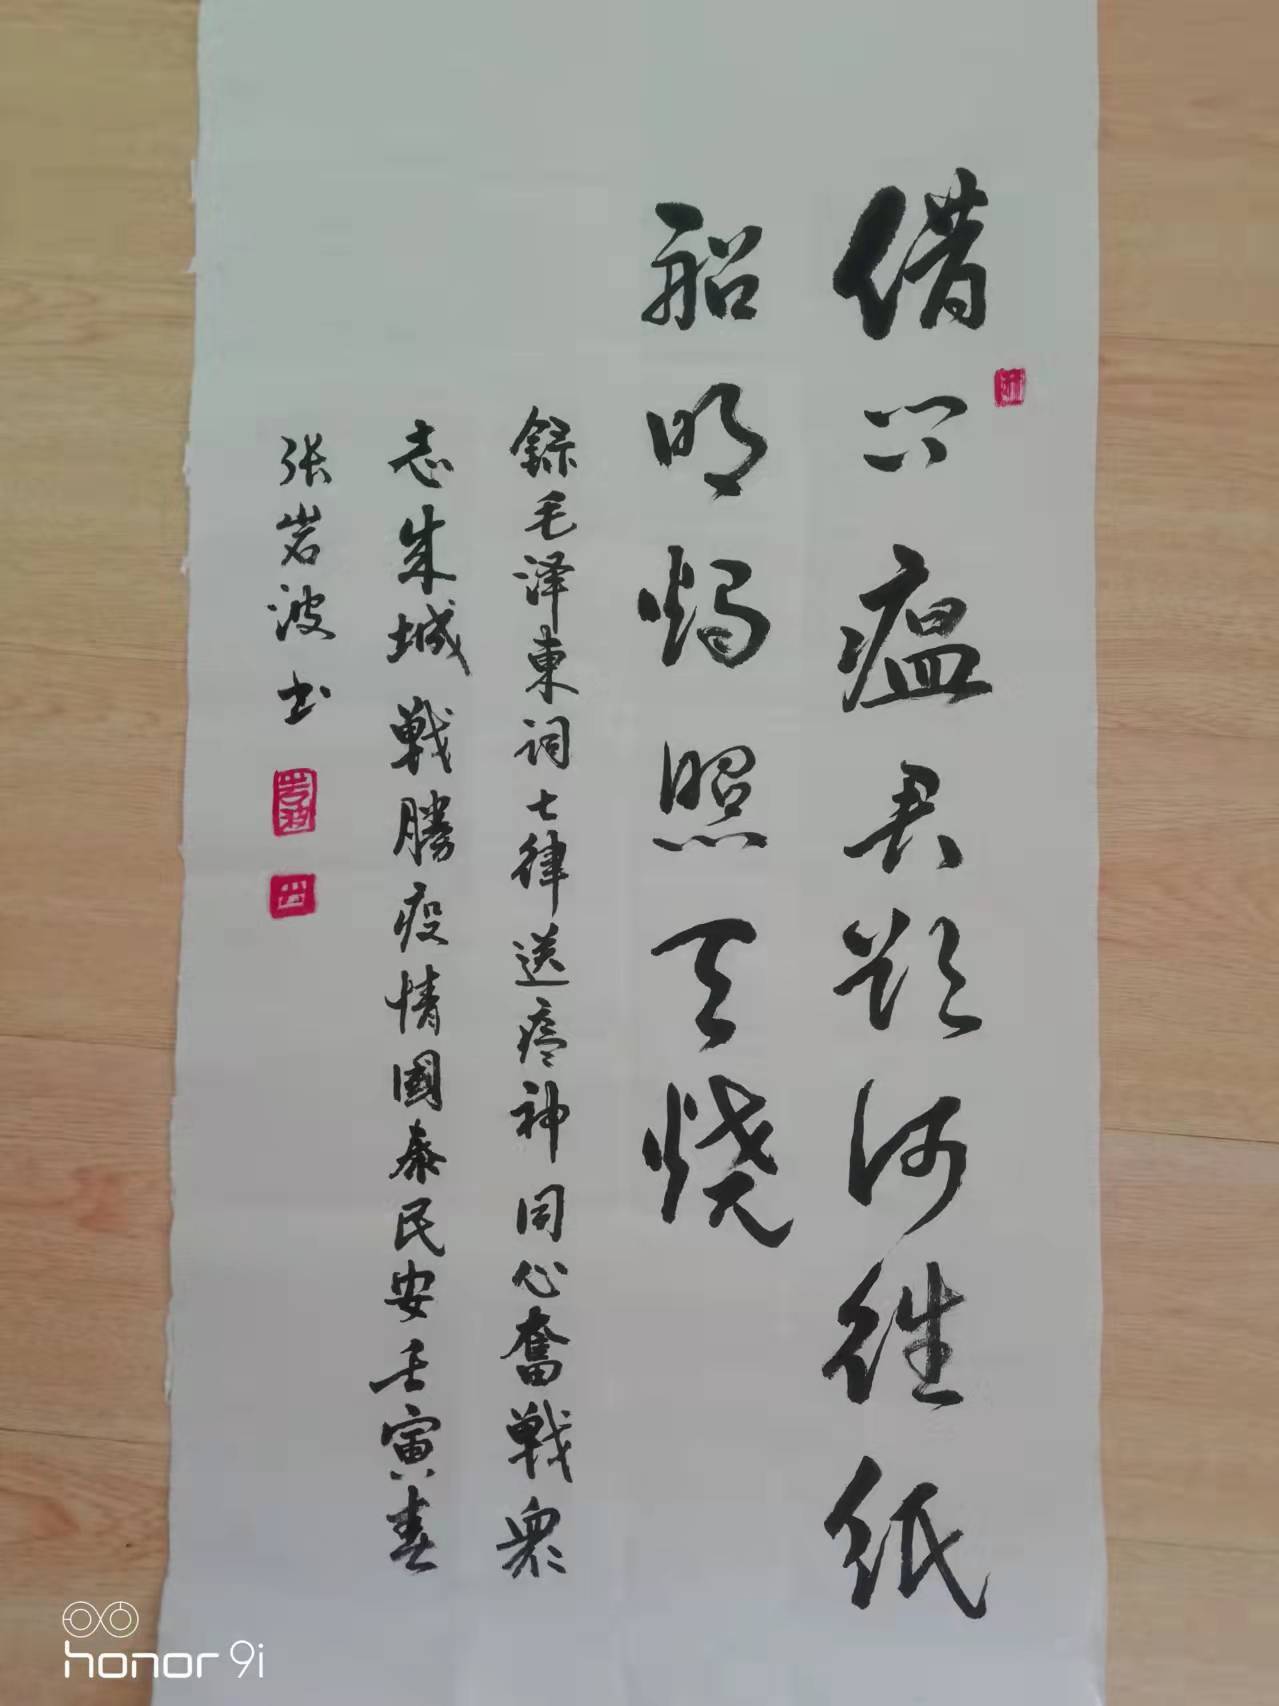 借问瘟君欲何往纸
船明烛照天烧
錄毛泽東词七律送瘟神同心奮戰衆
志成城戰勝疫情國泰民安壬寅春
张岩波书
honor 9i